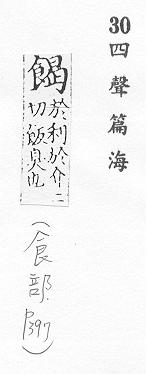 30 四聲篇海
餲
於利於介二
切飯臭也
(食部.
P397)